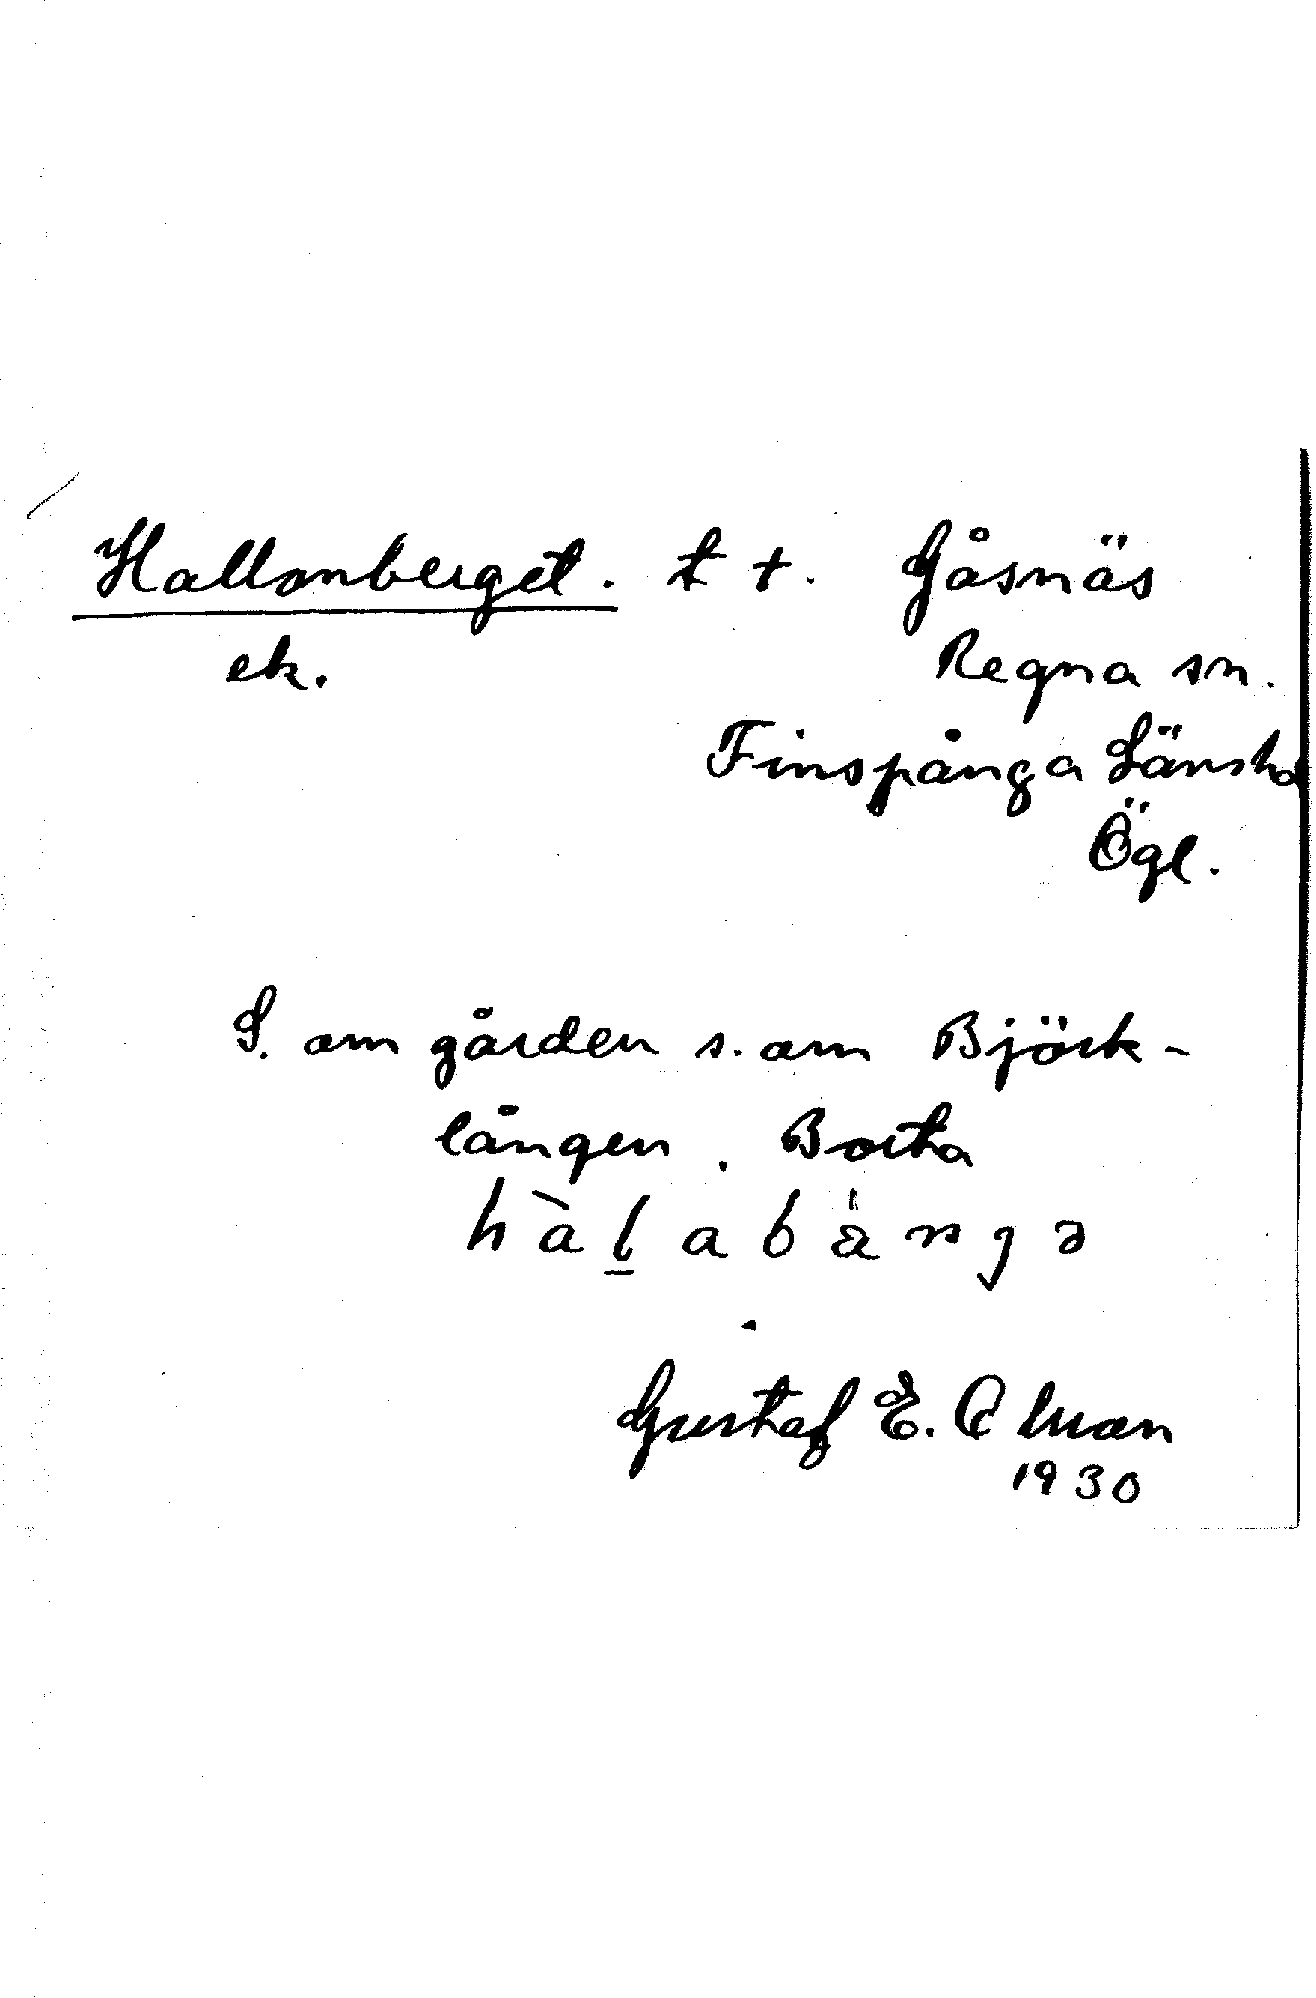 Hallonberget. t t. Gåsnäs
ek. Regna sn.
Finspånga Länsha
Ögl.
S. om gården s. om Björk-
lången. Borta
hàḻabàrjə
Gustaf E. Elman
1930